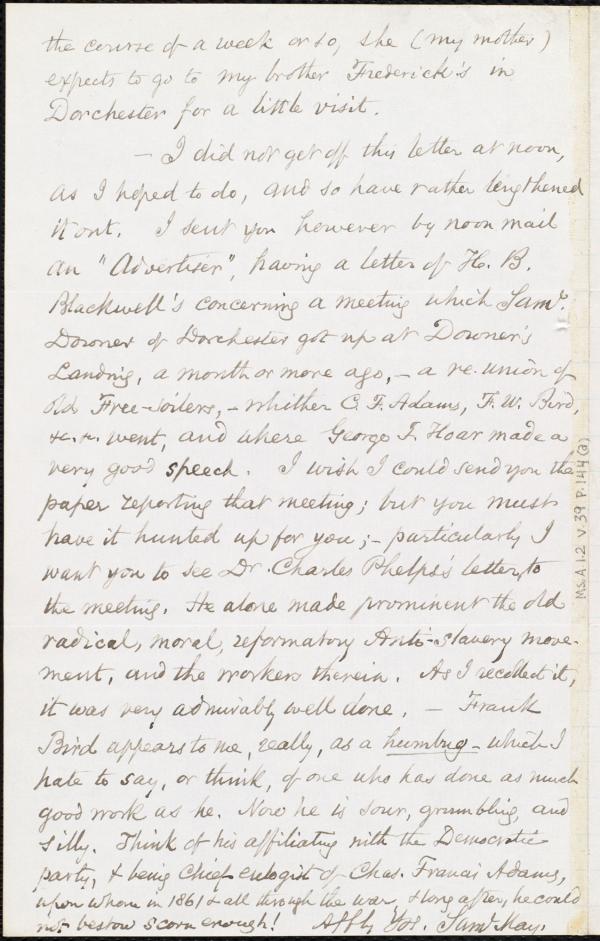 the course of a week or so, she (my mother)
expects to go to my brother Frederick's in
Dorchester for a little visit.
— I did not get off this letter at noon,
as I hoped to do, and so have rather lengthened
it out. I sent you however by noon mail
an "Advertiser", having a letter of H. B.
Blackwell's concerning a meeting which Saml.
Downer of Dorchester got up at Downer's
Landing, a month or more ago, – a re-union of
old Free-soilers, – whither C. F. Adams, F. W. Bird,
&c. &c. went, and where George F. Hoar made a
very good speech. I wish I could send you the
paper reporting that meeting; but you must
have it hunted up for you; – particularly I
want you to see Dr. Charles Phelps's letter to
the meeting. He alone made prominent the old
radical, moral, reformatory Anti-slavery move-
ment, and the workers therein. As I recollect it,
it was very admirably well done. — Frank
Bird appears to me, really, as a humbug – which I
hate to say, or think, of one who has done as much
good work as he. Now he is sour, grumbling, and
silly. Think of his affiliating with the Democratic
party, & being Chief eulogist of Chas. Francis Adams,
upon whom in 1861 & all through the war, & long after, he could
not bestow scorn enough! Affly Yrs. Saml. May.
MS.A.1.2 V.39 P.144(a)